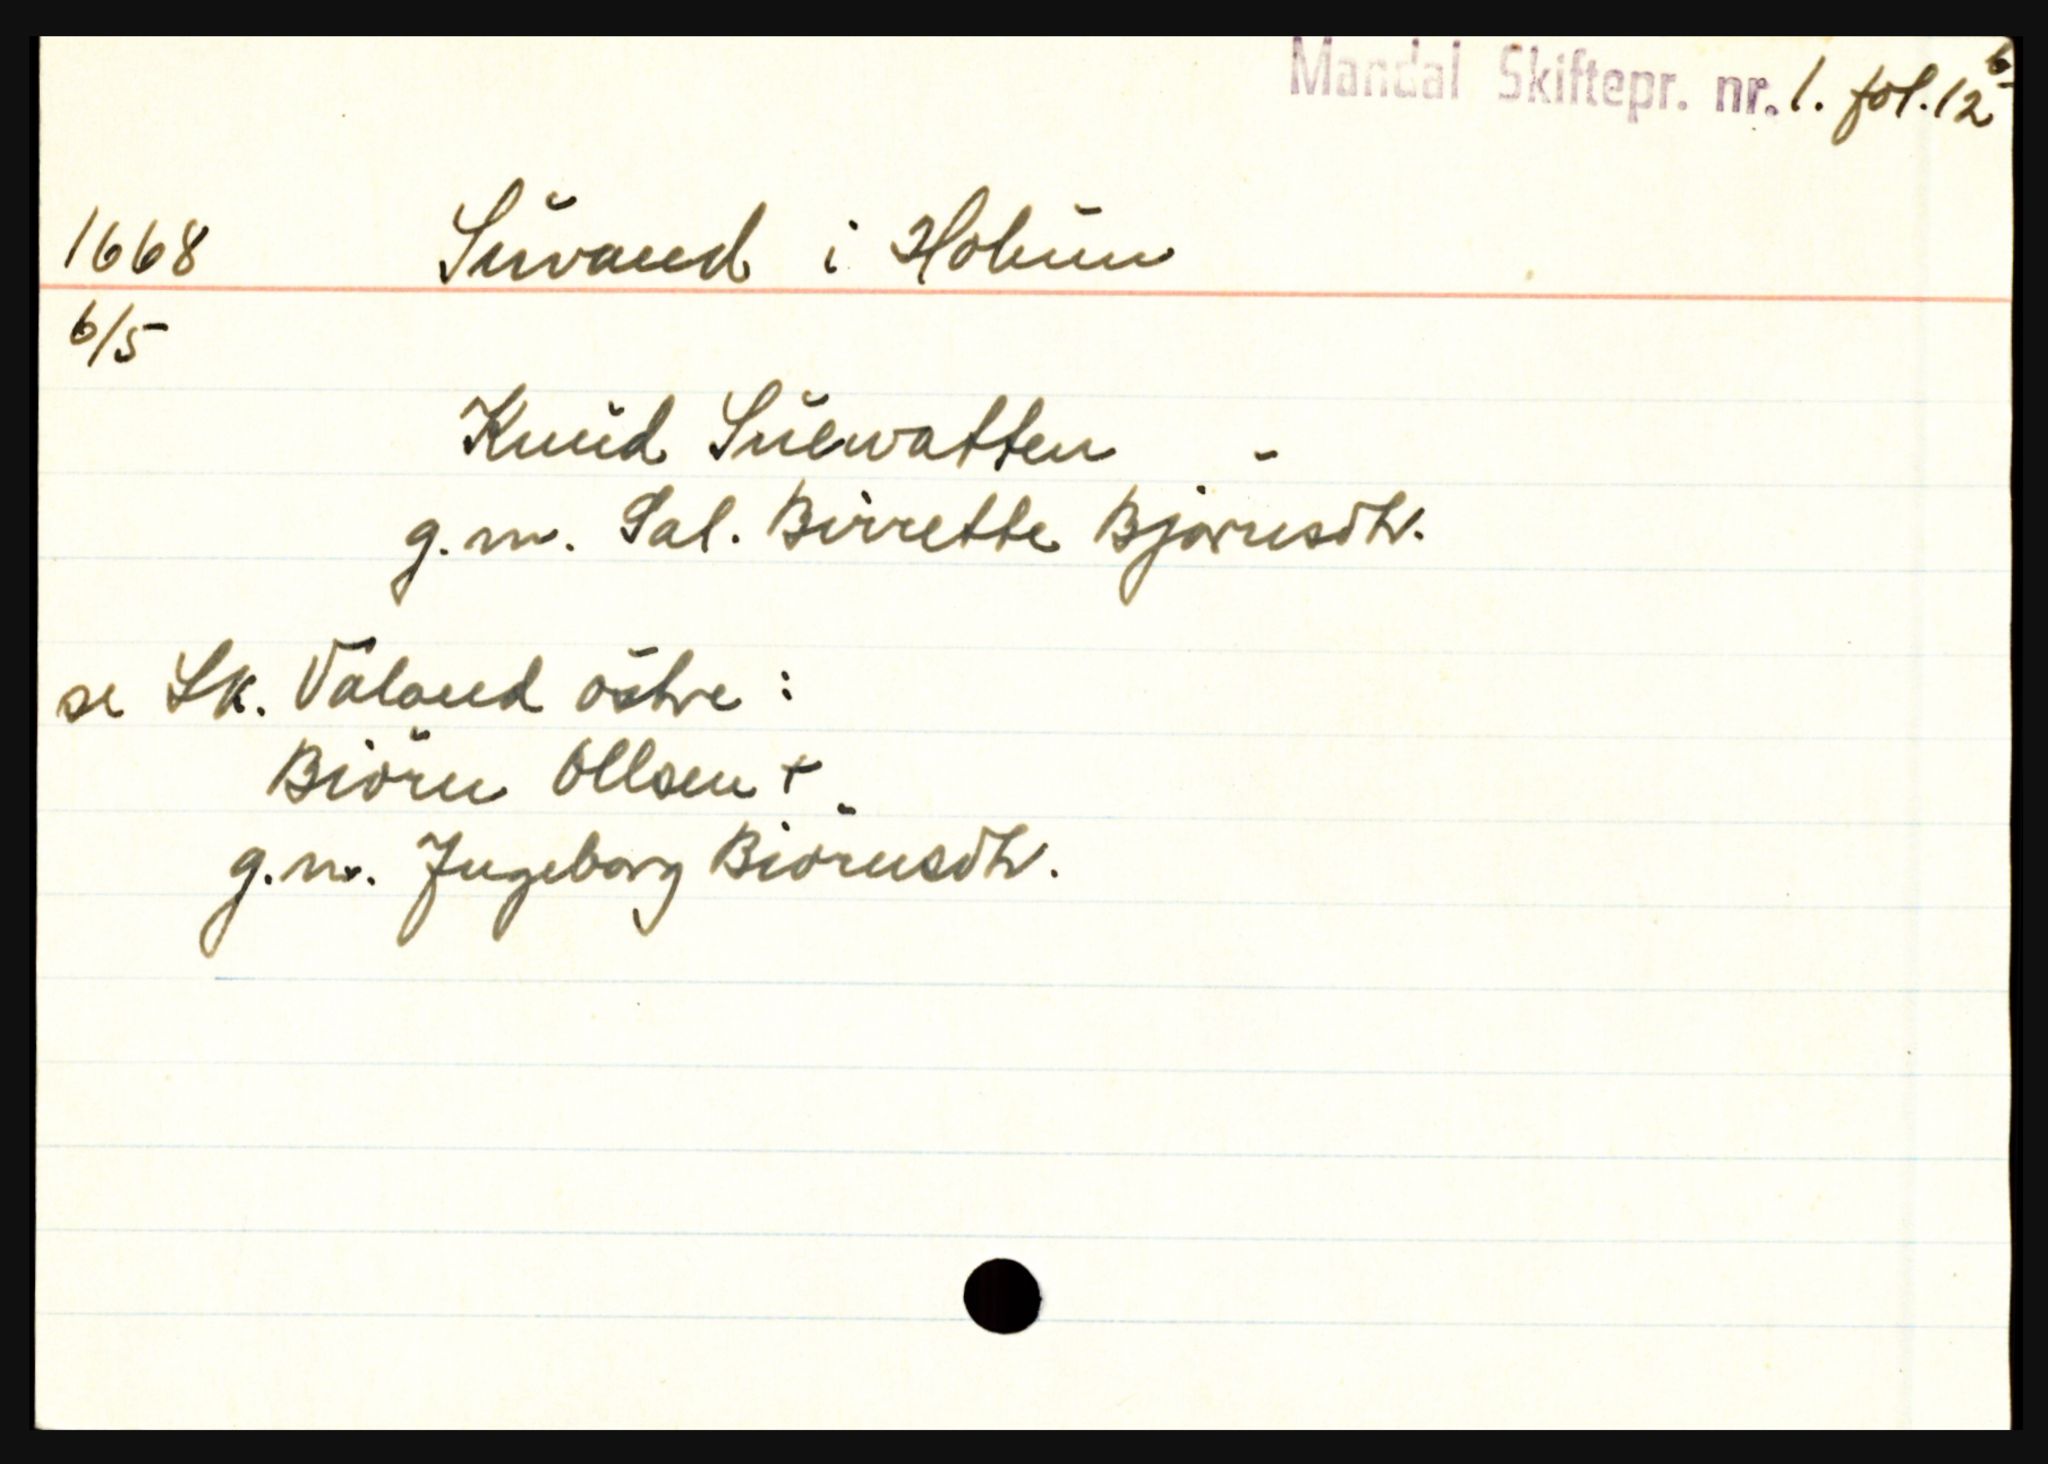 Mandal Skiftepr. nr. 1. fol. 12 b
1668 Suvand i Holum
6/5
Knud Suewatten
g.m. Sal. Birrette Bjørnsdtr.
se Sk. Valand østre :
Biörn Ollsen +
g.m. Ingeborg Biörnsdtr.